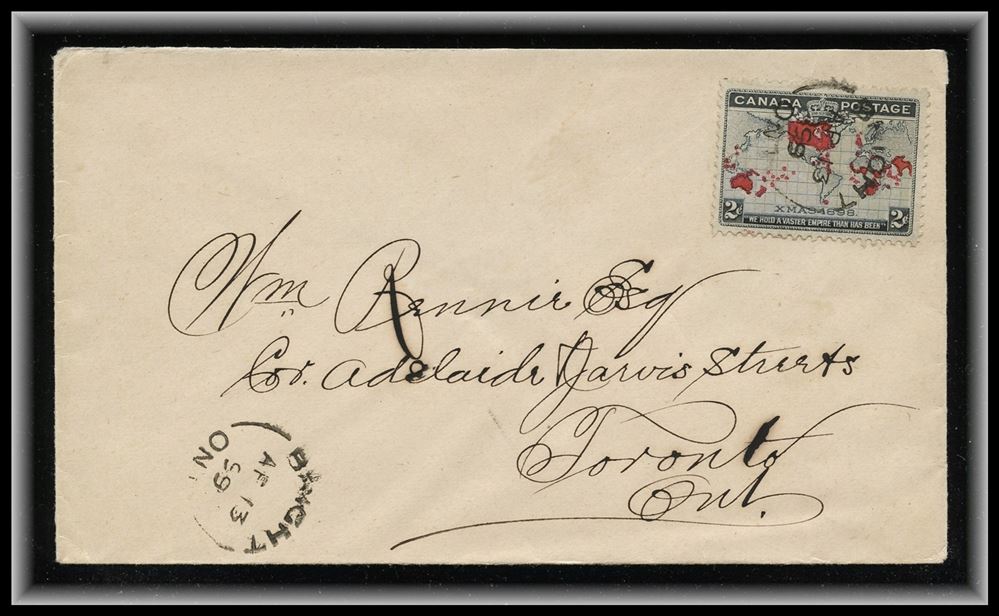 CANADA POSTAGE
2¢ XMAS 1898. 2¢
"WE HOLD A VASTER EMPIRE THAN HAS BEEN"
Wm Rennie Esq
Cor. Adelaide & Jarvis Streets
Toronto
Ont.
AP 13
99